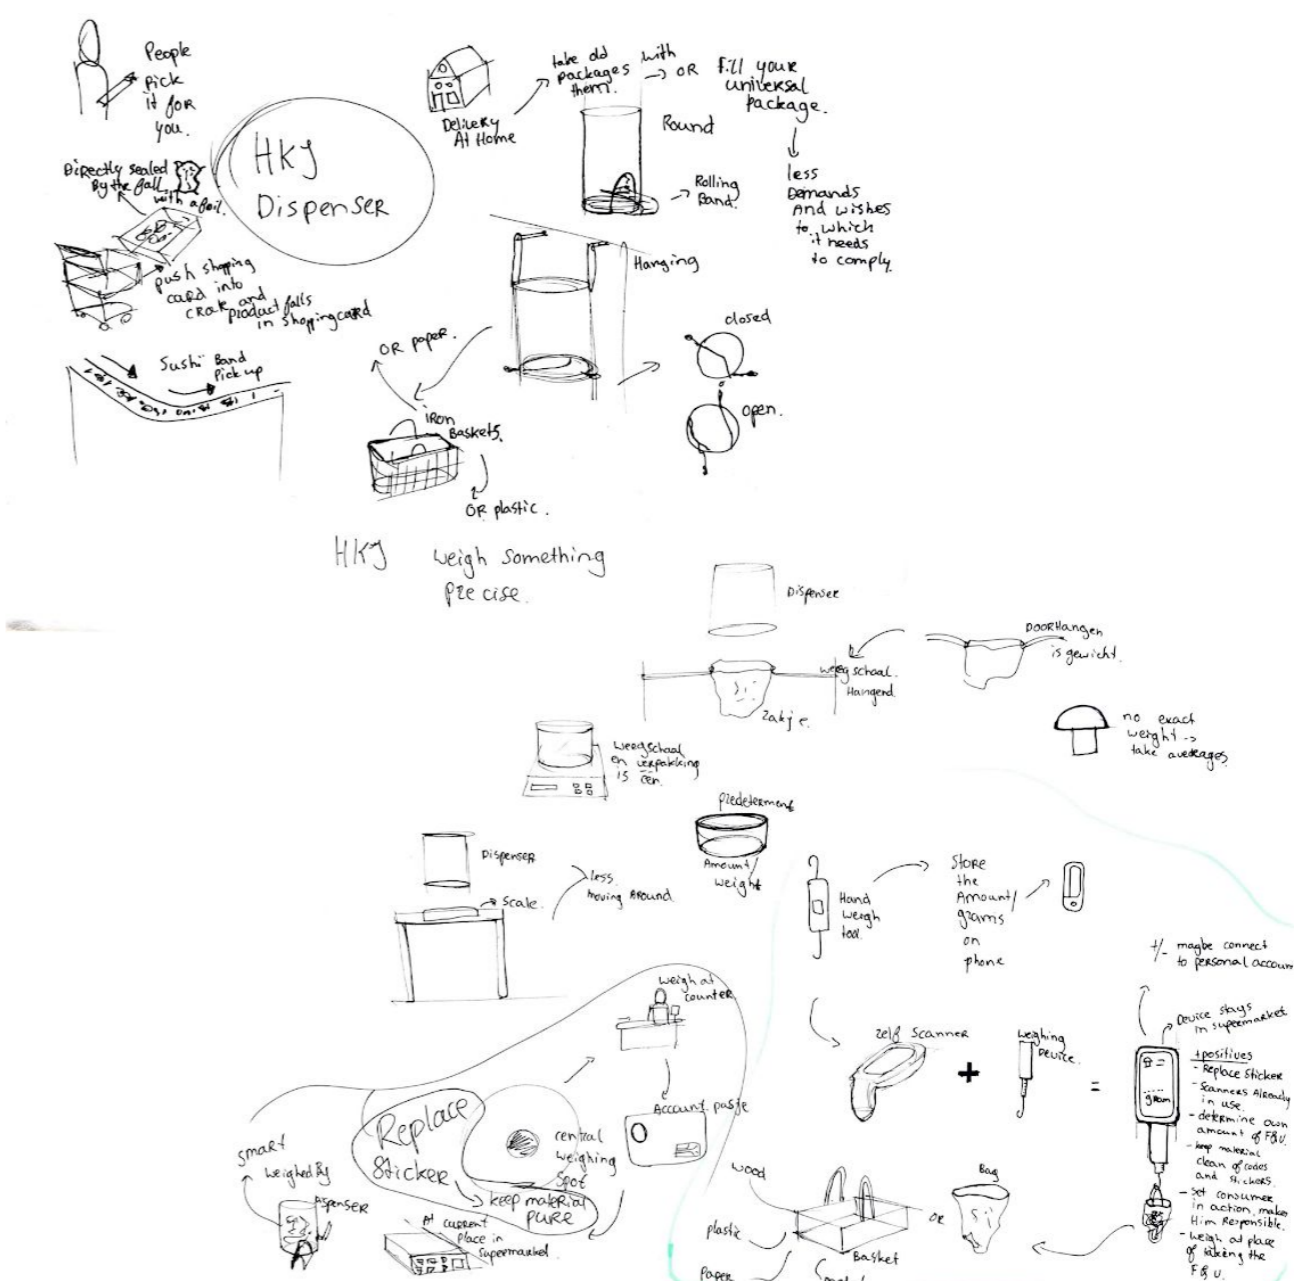 People
pick
it for
you.
HKJ
Dispenser
Directly sealed
By the fall,
with a foil.
push shopping
card into
crak and
product falls
in shoppingcard
Sushi Band
Pick up
Delivery
At Home
take old
packages
them.
with
OR
Fill your
universal
package.
less
Demands
And wishes
to which
it needs
to comply.
Round
Rolling
Band.
Hanging
closed
open.
OR paper.
iron
Baskets.
OR plastic.
HKJ weigh something
precise.
Dispenser
weegschaal
Hangend
zakje.
DOORHangen
is gewicht.
no exact
weight ->
take averages.
weegschaal
en verpakking
is één.
predeterment
Amount/
weight
Dispenser
Scale.
less
moving Around.
Hand
weigh
tool.
Store
the
Amount/
grams
on
phone
+/- maybe connect
to personal accoun
Device stays
in supermarket
zelf Scanner
+
weighing
Device.
=
gram
+positives
- Replace Sticker
- Scanners Already
in use.
- determine own
amount of F&U.
- keep material
clean of codes
and stickers.
- Set consumer
in action, makes
Him Responsible.
- weigh at place
of taking the
F&U.
weigh at
counter
Account pasje
central
weighing
spot
Replace
Sticker
keep material
PURE
smart
weighed By
Dispenser
At current
place in
supermarket.
wood
plastic
Paper
Basket
OR
Bag